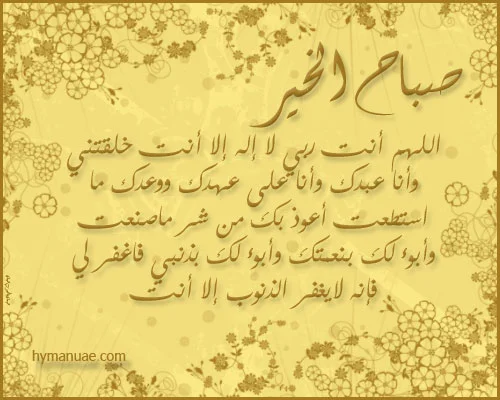 صباح الخير
اللهم أنت ربي لا إله إلا أنت خلقتني
وأنا عبدك وأنا على عهدك ووعدك ما
استطعت أعوذ بك من شر ماصنعت
وأبوء لك بنعمتك وأبوء لك بذنبي فاغفر لي
فإنه لايغفر الذنوب إلا أنت
hymanuae.com